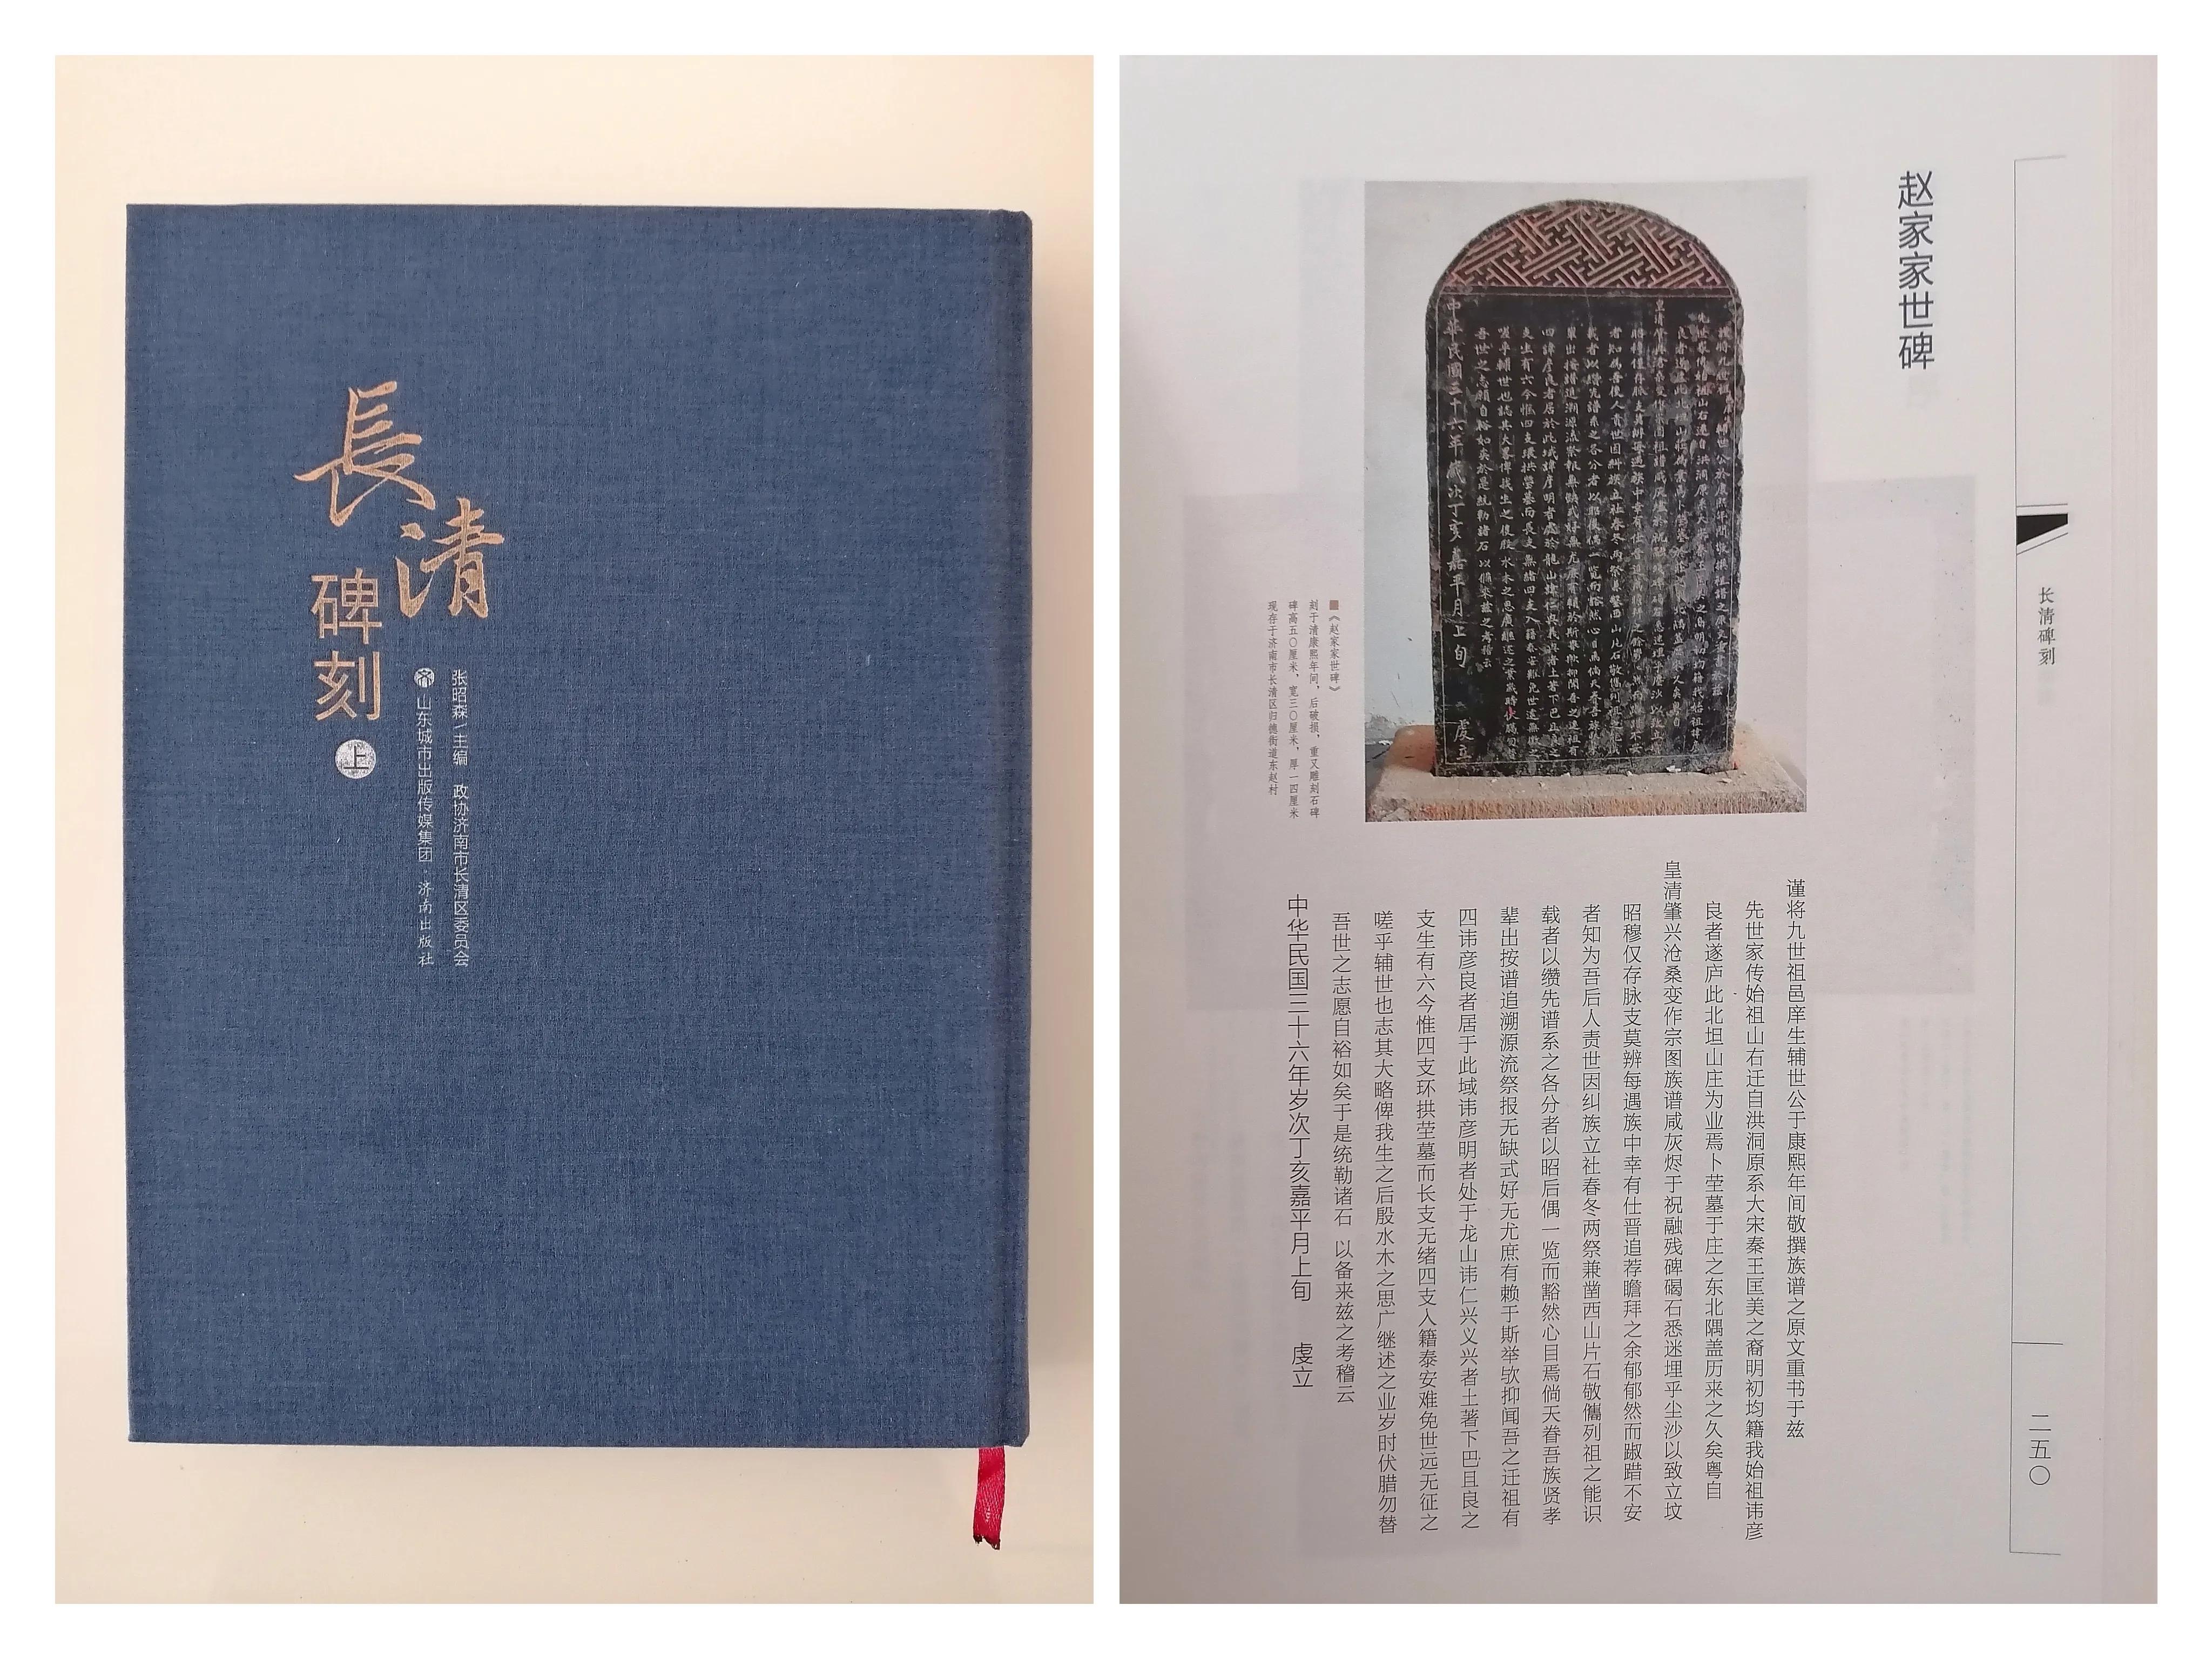 長清
碑刻
上
张昭森\主编 政协济南市长清区委员会
山东城市出版传媒集团·济南出版社
长清碑刻
二五〇
赵家家世碑
谨将九世祖邑庠生辅世公于康熙年间敬撰族谱之原文重书于兹
先世家传始祖山右迁自洪洞原系大宋秦王匡美之裔明初均籍我始祖讳彦
良者遂庐此北坦山庄为业焉卜茔墓于庄之东北隅盖历来之久矣粤自
皇清肇兴沧桑变作宗图族谱咸灰烬于祝融残碑碣石悉迷埋乎尘沙以致立坟
昭穆仅存脉支莫辨每遇族中幸有仕晋追荐瞻拜之余郁郁然而踧踖不安
者知为吾后人责世因纠族立社春冬两祭兼凿西山片石敬儶列祖之能识
载者以缵先谱系之各分者以昭后偶一览而豁然心目焉倘天眷吾族贤孝
辈出按谱追溯源流祭报无缺式好无尤庶有赖于斯举欤抑闻吾之迁祖有
四讳彦良者居于此域讳彦明者处于龙山讳仁兴义兴者土著下巴且良之
支生有六今惟四支环拱茔墓而长支无绪四支入籍泰安难免世远无征之
嗟乎辅世也志其大略俾我生之后殷水木之思广继述之业岁时伏腊勿替
吾世之志愿自裕如矣于是统勒诸石 以备来兹之考稽云
中华民国三十六年岁次丁亥嘉平月上旬 虔立
《赵家家世碑》
刻于清康熙年间，后破损，重又雕刻石碑
碑高五〇厘米，宽三〇厘米，厚一四厘米
现存于济南市长清区归德街道东赵村
中华民国三十六年岁次丁亥嘉平月上旬 虔立